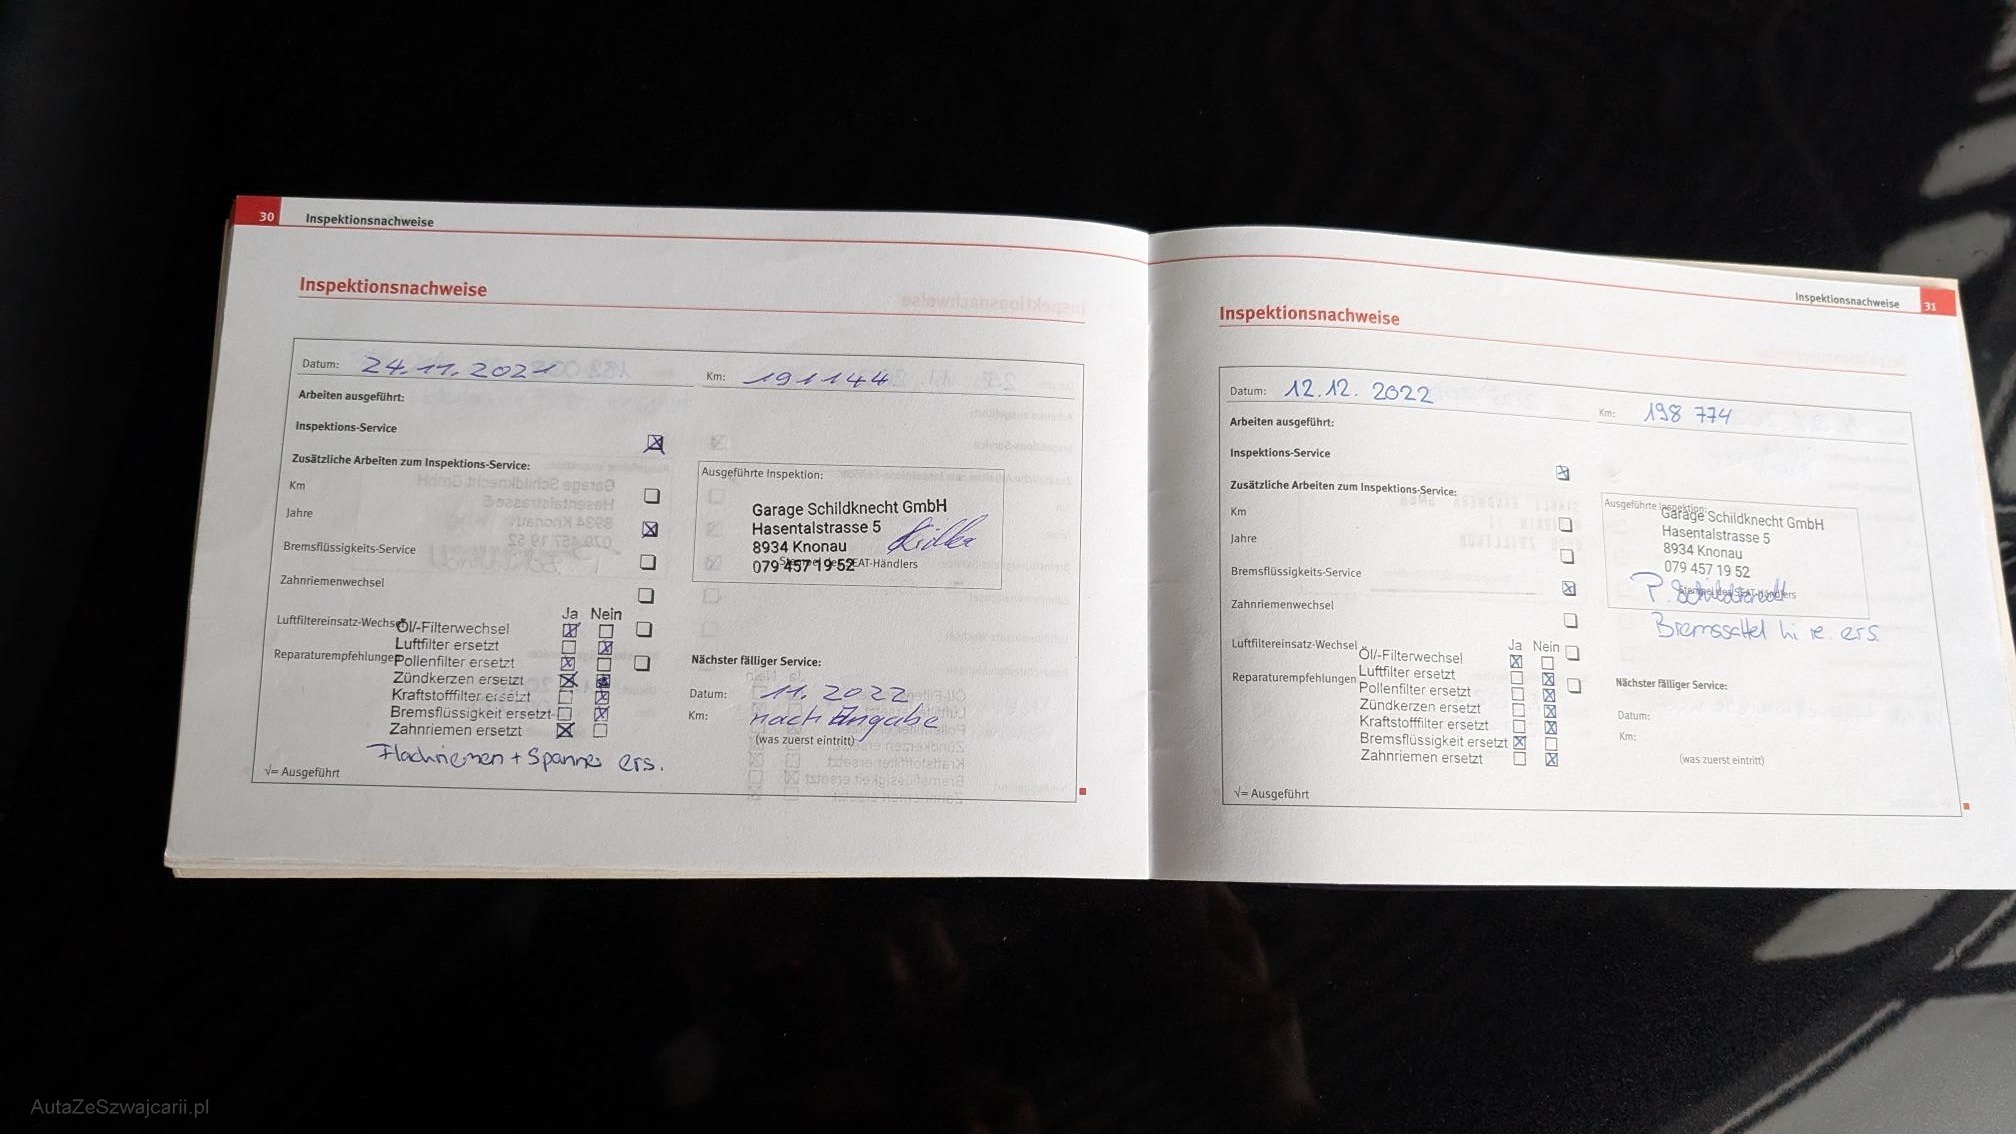 30 Inspektionsnachweise
Inspektionsnachweise
Datum: 24.11.2021 Km: 191144
Arbeiten ausgeführt:
Inspektions-Service
Zusätzliche Arbeiten zum Inspektions-Service:
Km
Jahre
Bremsflüssigkeits-Service
Zahnriemenwechsel
Luftfiltereinsatz-Wechsel
Reparaturempfehlungen
Ja Nein
Öl/-Filterwechsel
Luftfilter ersetzt
Pollenfilter ersetzt
Zündkerzen ersetzt
Kraftstofffilter ersetzt
Bremsflüssigkeit ersetzt
Zahnriemen ersetzt
Flachriemen + Spanner ers.
√= Ausgeführt
Ausgeführte Inspektion:
Garage Schildknecht GmbH
Hasentalstrasse 5
8934 Knonau
079 457 19 52
Stempel des SEAT-Händlers
Nächster fälliger Service:
Datum: 11. 2022
Km: nach Angabe
(was zuerst eintritt)
Inspektionsnachweise 31
Inspektionsnachweise
Datum: 12.12. 2022 Km: 198 774
Arbeiten ausgeführt:
Inspektions-Service
Zusätzliche Arbeiten zum Inspektions-Service:
Km
Jahre
Bremsflüssigkeits-Service
Zahnriemenwechsel
Luftfiltereinsatz-Wechsel
Reparaturempfehlungen
Ja Nein
Öl/-Filterwechsel
Luftfilter ersetzt
Pollenfilter ersetzt
Zündkerzen ersetzt
Kraftstofffilter ersetzt
Bremsflüssigkeit ersetzt
Zahnriemen ersetzt
√= Ausgeführt
Ausgeführte Inspektion:
Garage Schildknecht GmbH
Hasentalstrasse 5
8934 Knonau
079 457 19 52
Stempel des SEAT-Händlers
P. Schildknecht
Bremssattel hi re. ers.
Nächster fälliger Service:
Datum:
Km:
(was zuerst eintritt)
AutaZeSzwajcarii.pl